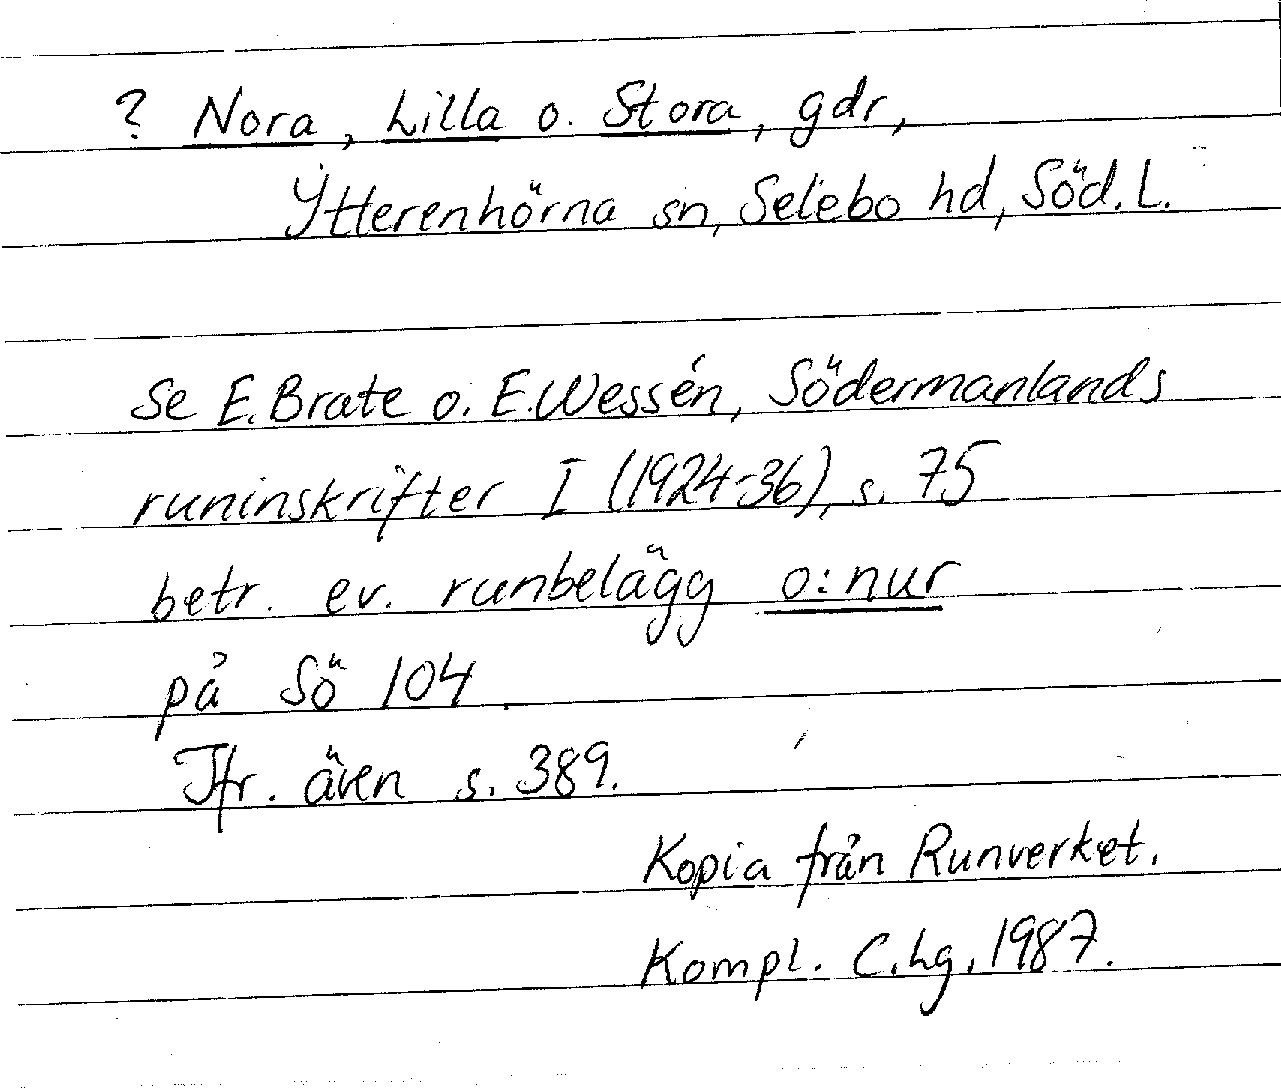 ? Nora, Lilla o. Stora, gdr,
Ytterenhörna sn, Selebo hd, Söd. L.
Se E. Brate o. E. Wessén, Södermanlands
runinskrifter I (1924-36), s. 75
betr. ev. runbelägg o:nur
på Sö 104.
Jfr. även s. 389.
Kopia från Runverket.
Kompl. C. Lg. 1987.